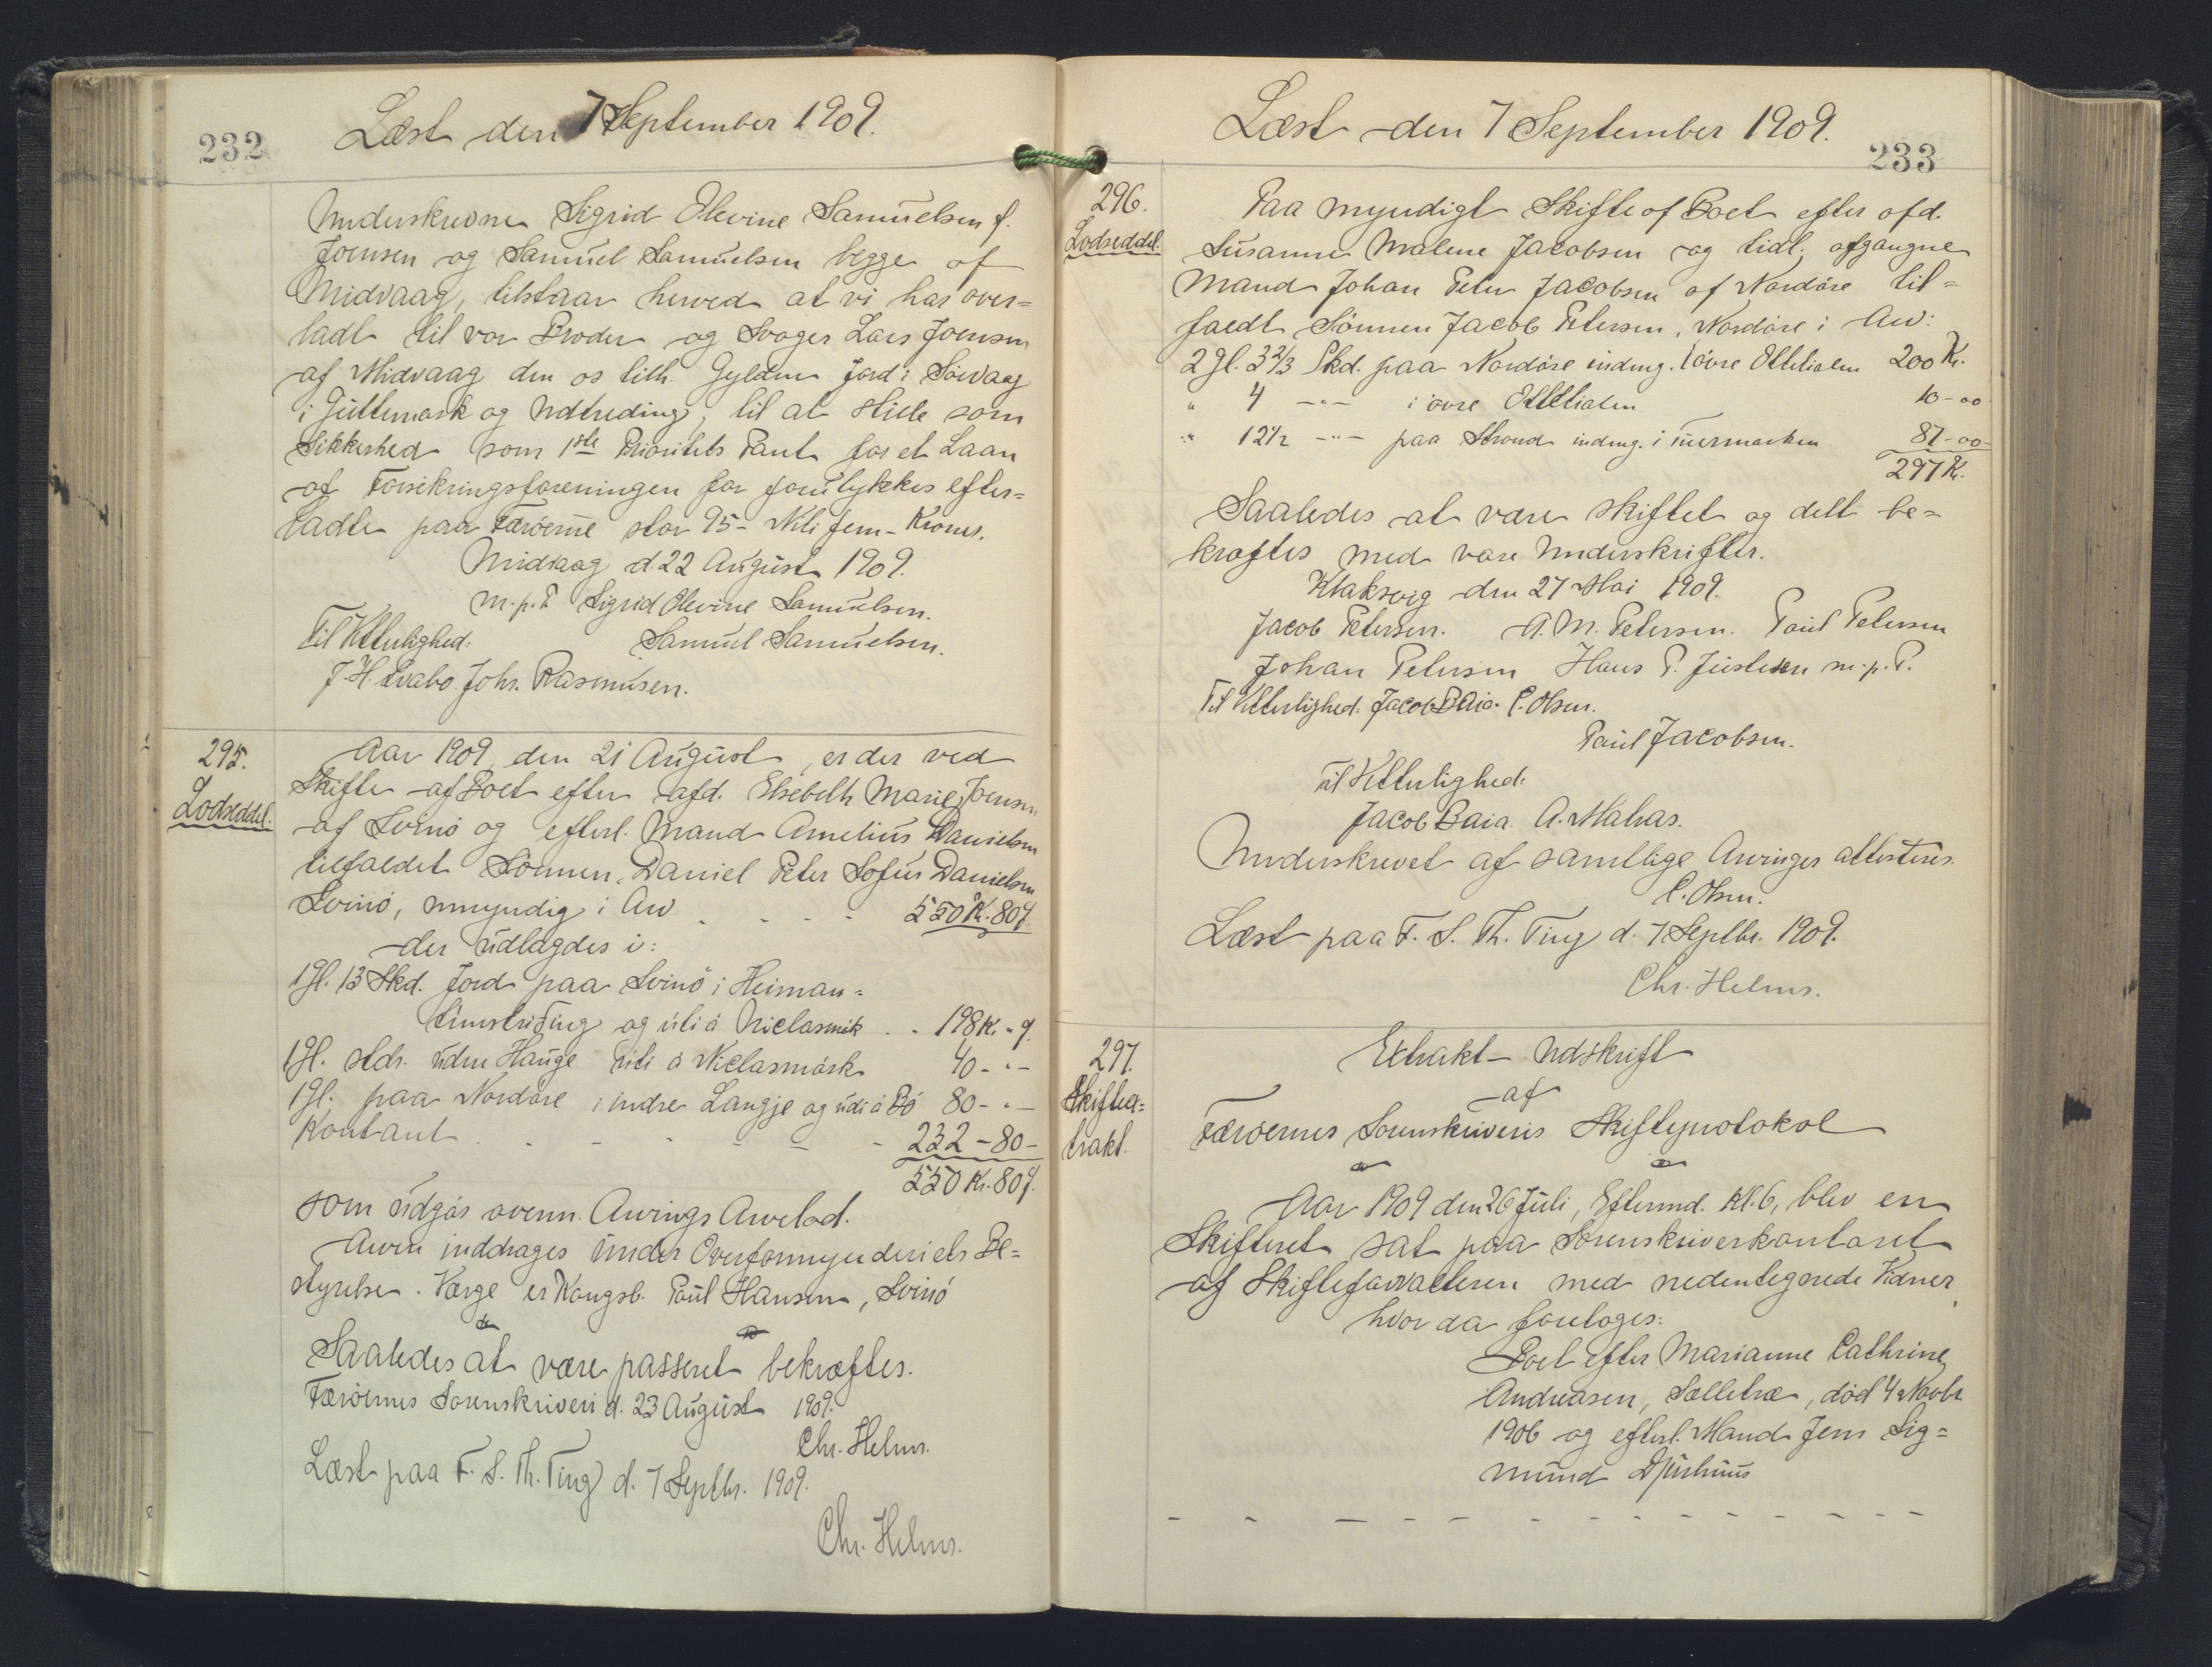 232
Læst den 7 September 1909.
Underskrevne Sigrid Olevine Samuelsen f.
Joensen og Samuel Samuelsen begge af
Midvaag, tilstaar herved at vi har over=
ladt til vor Broder og Svoger Lars Joensen
af Midvaag den os tilh. Gylden Jord i Sörvaag
i Gultemark og Udtreding, til at stille som
Sikkerhed som 1ste Prioritets Pant for et Laan
af Forsikringsforeningen for forulykkes efter=
ladte paa Færöerne stor 95- Niti fem- Kroner.
Midvaag d. 22 August 1909.
m.p.P Sigrid Olevine Samuelsen.
Til Vitterlighed: Samuel Samuelsen.
J.H. Svabo. Johs. Rasmusen.
295.
Lodseddel.
Aar 1909, den 21 August, er der ved
Skifte af Boet efter afd. Elsebeth Marie Joensen
af Svinö og efterl. Mand Amelius Danielsen
tilfaldet Sönnen, Daniel Peter Sofus Danielsen
Svinö, umyndig i Arv - - - - 550 K. 80 ø.
der udlagdes i:
1 Gl. 13 Skd. Jord paa Svinö i Heiman=
tunstriding og úti á Niclasmörk . . 198 K. " ø.
1 Gl. stdr. uden Hauge úti á Niclasmörk 40 - " -
1 Gl. paa Nordöre i indre Langje og údi á Bö 80 - " -
Kontant . - - - - - - 232 - 80 -
550 Kr. 80 ø.
som udgör ovenn. Arvings Arvelod.
Arven inddrages under Overformynderiets Be=
styrelse. Værge er Kongsb. Poul Hansen, Svinö
Saaledes at være passeret bekræftes.
Færöernes Sorenskriveri d. 23 August 1909.
Chr. Helms.
Læst paa F. S. Th. Ting d. 7 Septbr. 1909.
Chr. Helms.
Læst den 7 September 1909.
233
296.
Lodseddel.
Paa myndigt Skifte af Boet efter afd.
Susanne Malene Jacobsen og tidl. afgangne
Mand Johan Peter Jacobsen af Nordöre til=
faldt Sönnen Jacob Petersen, Nordöre i Arv:
2 Gl. 3 2/3 Skd. paa Nordöre indmg. i övre 200 Kr.
" 4 -"- i övre 10-00
" 12 1/2 -"- paa Strond indmg. i 87-00-
297 K.
Saaledes at være skiftet og delt be=
kræftes med vore Underskrifter.
Klaksvig den 27 Mai 1909.
Jacob Petersen. A. M. Petersen. Poul Petersen
Johan Petersen Hans P. Justesen m.p.P.
Til Vitterlighed: Jacob Baia. C. Olsen.
Poul Jacobsen.
Til Vitterlighed:
Jacob Baia. A. Matras.
Underskrevet af samtlige Arvinger attesteres.
C. Olsen.
Læst paa F. S. Th. Ting d. 7 Septbr. 1909.
Chr. Helms.
297.
Skifteex=
trakt.
Extrakt-Udskrift
af
Færöernes Sorenskriveris Skifteprotokol
Aar 1909 den 26 Juli, Eftermd. Kl. 6, blev en
Skifteret sat paa Sorenskriverkontoret
af Skifteforvalteren med nedentegnede Vidner,
hvor da foretoges:
Boet efter Marianne Cathrine
Andreasen, Selletræ, död 4 Novbr.
1906 og efterl. Mand Jens Sig=
mund Djurhuus
- - - - - - - - - - - - - -